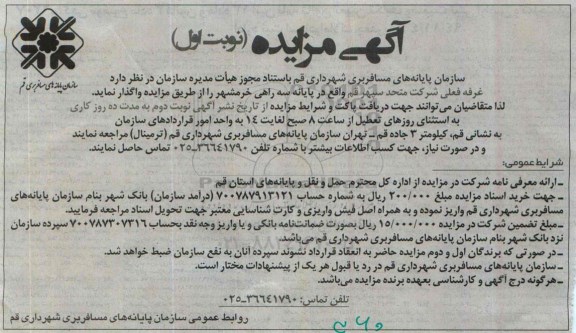 آگهی مزایده (نوبت اول)
سازمان پایانه‌های مسافربری قم
سازمان پایانه‌های مسافربری شهرداری قم باستناد مجوز هیأت مدیره سازمان در نظر دارد
غرفه فعلی شرکت متحد سپهر قم واقع در پایانه سه راهی خرمشهر را از طریق مزایده واگذار نماید.
لذا متقاضیان می‌توانند جهت دریافت پاکت و شرایط مزایده از تاریخ نشر آگهی نوبت دوم به مدت ده روز کاری
به استثنای روزهای تعطیل از ساعت ۸ صبح لغایت ۱۴ به واحد امور قراردادهای سازمان
به نشانی قم، کیلومتر ۳ جاده قم - تهران سازمان پایانه‌های مسافربری شهرداری قم (ترمینال) مراجعه نمایند
و در صورت نیاز، جهت کسب اطلاعات بیشتر با شماره تلفن ۳۶۶۴۱۷۹۰-۰۲۵ تماس حاصل نمایند.
شرایط عمومی:
- ارائه معرفی نامه شرکت در مزایده از اداره کل محترم حمل و نقل و پایانه‌های استان قم
- جهت خرید اسناد مزایده مبلغ ۲۰۰/۰۰۰ ریال به شماره حساب ۷۰۰۷۸۷۹۱۳۱۲۱ (درآمد سازمان) بانک شهر بنام سازمان پایانه‌های
مسافربری شهرداری قم واریز نموده و به همراه اصل فیش واریزی و کارت شناسایی معتبر جهت تحویل اسناد مراجعه فرمایید.
- مبلغ تضمین شرکت در مزایده ۱۵/۰۰۰/۰۰۰ ریال بصورت ضمانت‌نامه بانکی و یا واریز وجه نقد بحساب ۷۰۰۷۸۷۳۰۷۳۱۶ سپرده سازمان
نزد بانک شهر بنام سازمان پایانه‌های مسافربری شهرداری قم می‌باشد.
- در صورتی که برندگان اول و دوم مزایده حاضر به انعقاد قرارداد نشوند سپرده آنان به نفع سازمان ضبط خواهد شد.
- سازمان پایانه‌های مسافربری شهرداری قم در رد یا قبول هر یک از پیشنهادات مختار است.
- هرگونه درج آگهی و کارشناسی بعهده برنده مزایده می‌باشد.
تلفن تماس: ۳۶۶۴۱۷۹۰-۰۲۵
روابط عمومی سازمان پایانه‌های مسافربری شهرداری قم